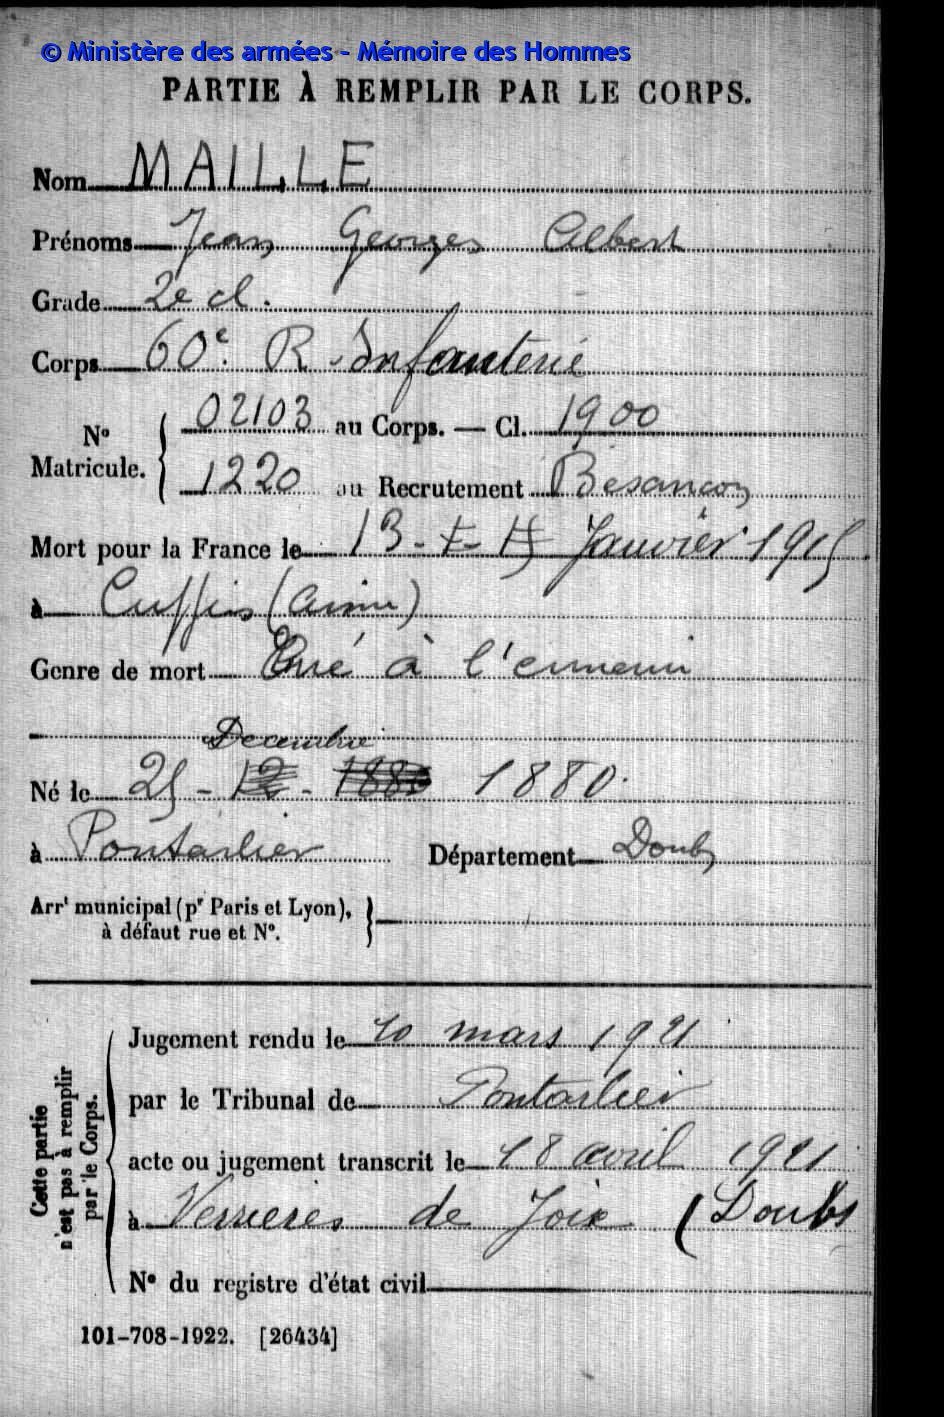 © Ministère des armées - Mémoire des Hommes
PARTIE À REMPLIR PAR LE CORPS.
Nom MAILLE
Prénoms Jean Georges Albert
Grade 2e cl.
Corps 60e R. Infanterie
N° Matricule. { 02103 au Corps. — Cl. 1900
1220 au Recrutement Besancon
Mort pour la France le 13 - Janvier 1915.
à Cuffies (Aisne)
Genre de mort Tué à l'ennemi
Decembre
Né le 25 - 12 - 1880 1880.
à Pontarlier Département Doubs
Arrt municipal (pr Paris et Lyon),
à défaut rue et N°.
Cette partie n'est pas à remplir par le Corps.
Jugement rendu le 10 mars 1921
par le Tribunal de Pontarlier
acte ou jugement transcrit le 18 avril 1921
à Verrieres de Joux (Doubs
N° du registre d'état civil
101-708-1922. [26434]